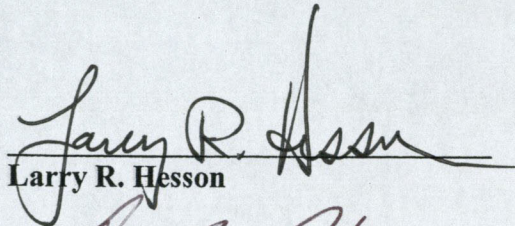 Larry R. Hesson
Larry R. Hesson